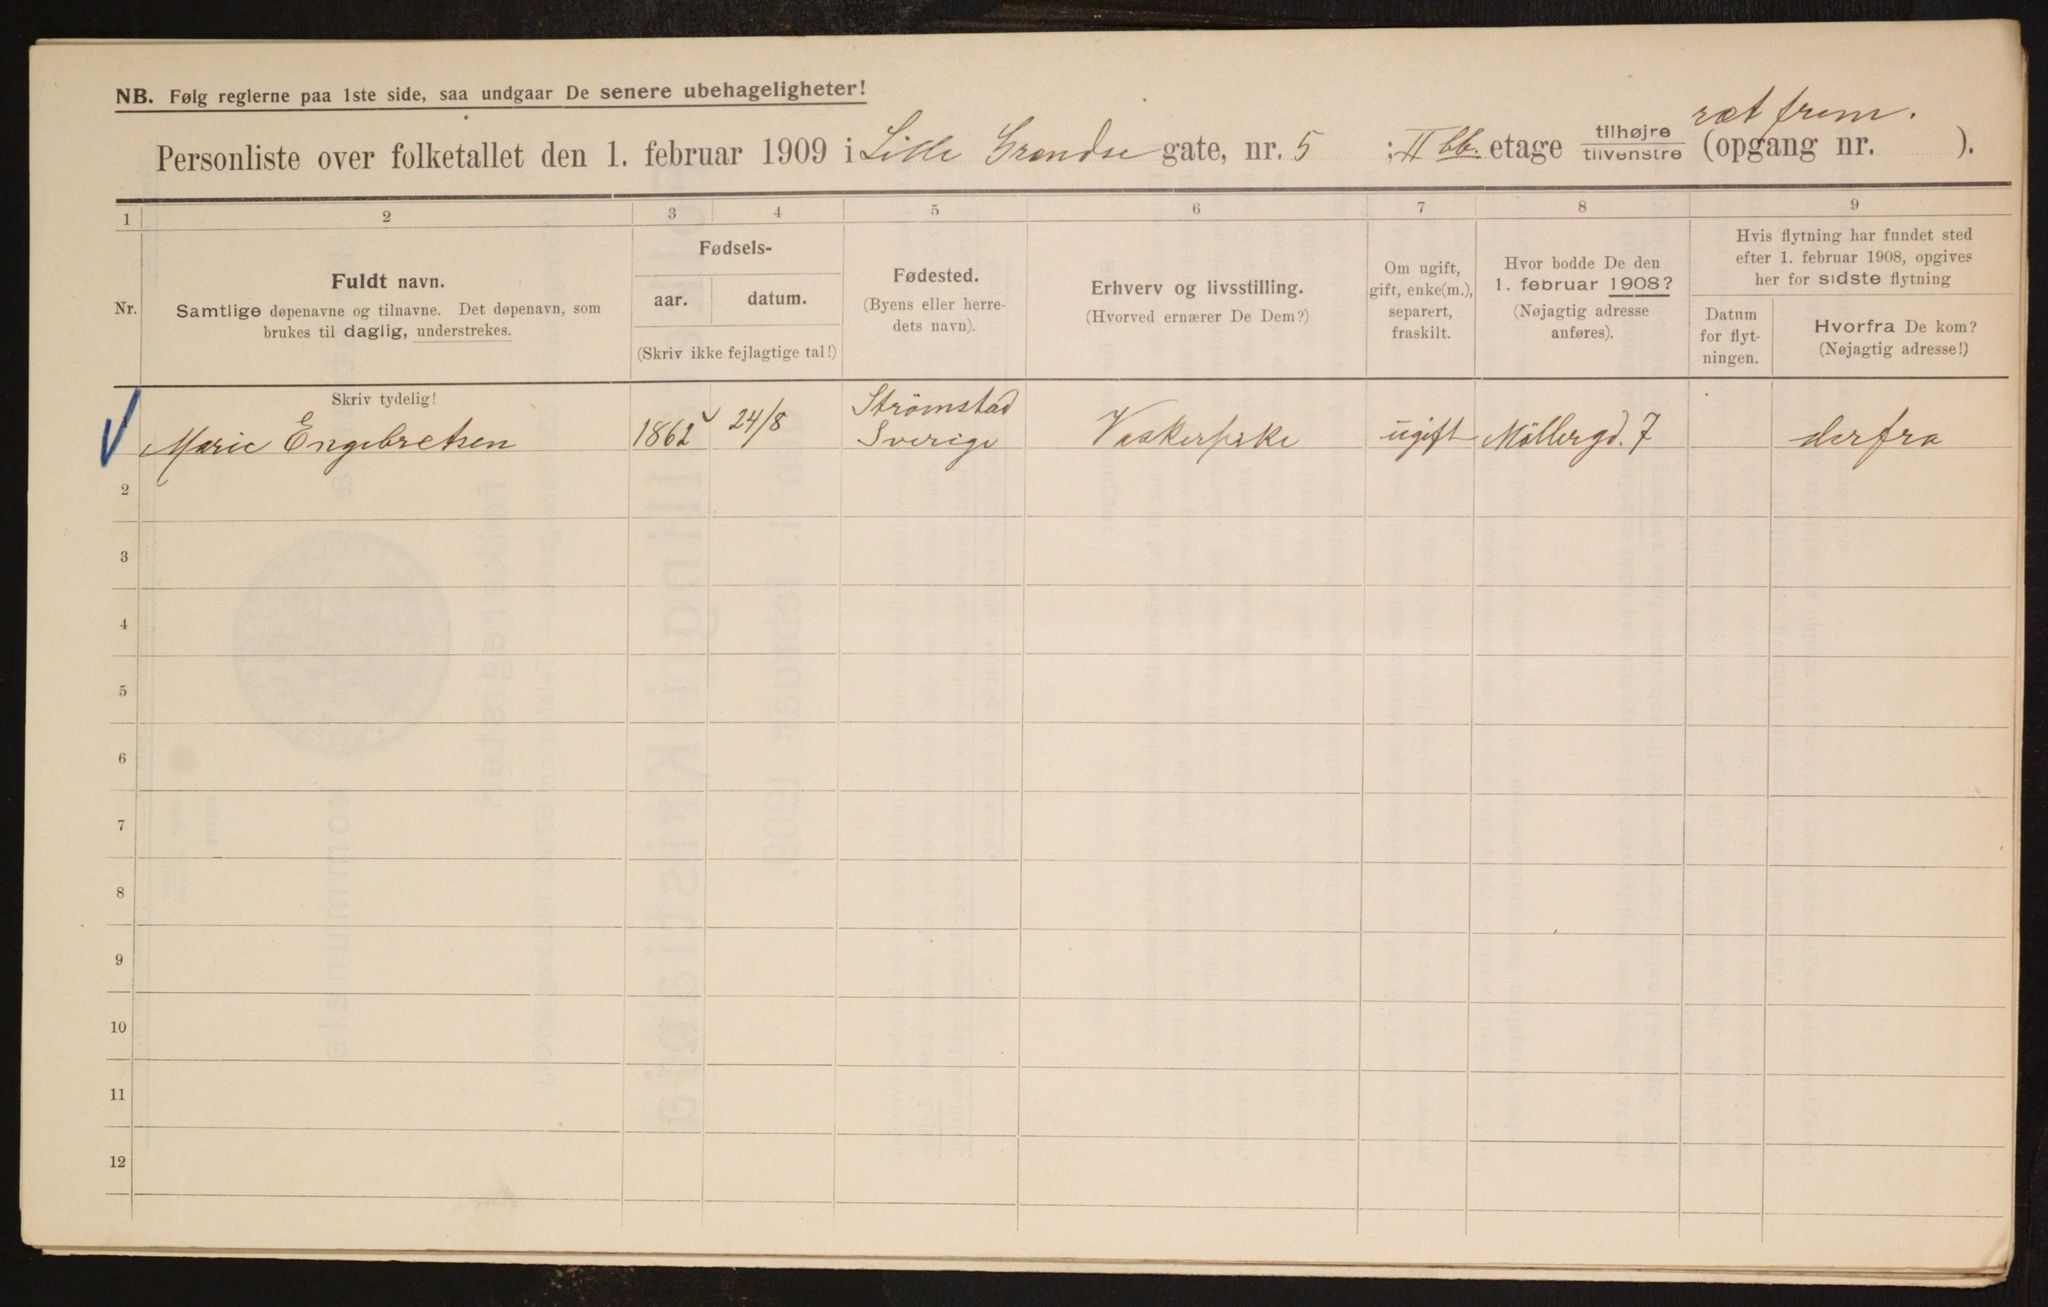 NB. Følg reglerne paa 1ste side, saa undgaar De senere ubehageligheter!
ret frem.
Personliste over folketallet den 1. februar 1909 i Lille Grændse gate, nr. 5 ; II bb. etage tilhøjre tilvenstre (opgang nr. ).
1 2 3 4 5 6 7 8 9
Nr.
Fuldt navn.
Samtlige døpenavne og tilnavne. Det døpenavn, som
brukes til daglig, understrekes.
Fødsels-
aar. datum.
(Skriv ikke fejlagtige tal!)
Fødested.
(Byens eller herre-
dets navn).
Erhverv og livsstilling.
(Hvorved ernærer De Dem?)
Om ugift,
gift, enke(m.),
separert,
fraskilt.
Hvor bodde De den
1. februar 1908?
(Nøjagtig adresse
anføres).
Hvis flytning har fundet sted
efter 1. februar 1908, opgives
her for sidste flytning
Datum
for flyt-
ningen.
Hvorfra De kom?
(Nøjagtig adresse!)
Skriv tydelig!
Marie Engebretsen 1862 24/8 Strömstad
Sverige Vaskerpike ugift Möllergd. 7 derfra
2
3
4
5
6
7
8
9
10
11
12